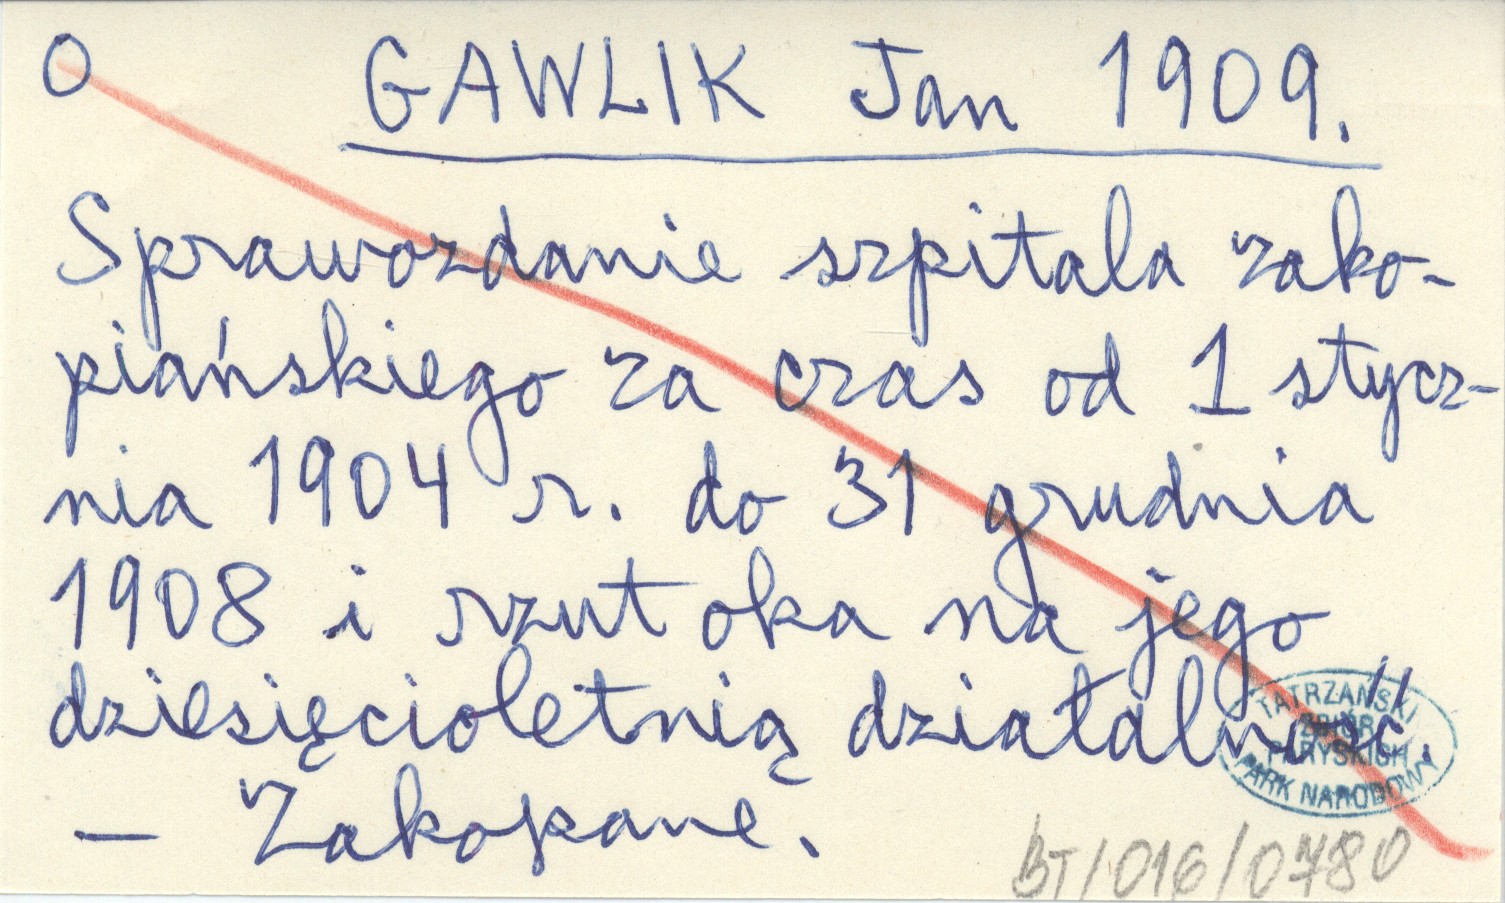 O GAWLIK Jan 1909.
Sprawozdanie szpitala zako-
piańskiego za czas od 1 stycz-
nia 1904 r. do 31 grudnia
1908 i rzut oka na jego
dziesięcioletnią działalność.
— Zakopane.
TATRZAŃSKI
ZBIÓR
PARYSKICH
PARK NARODOWY
BT/016/0780